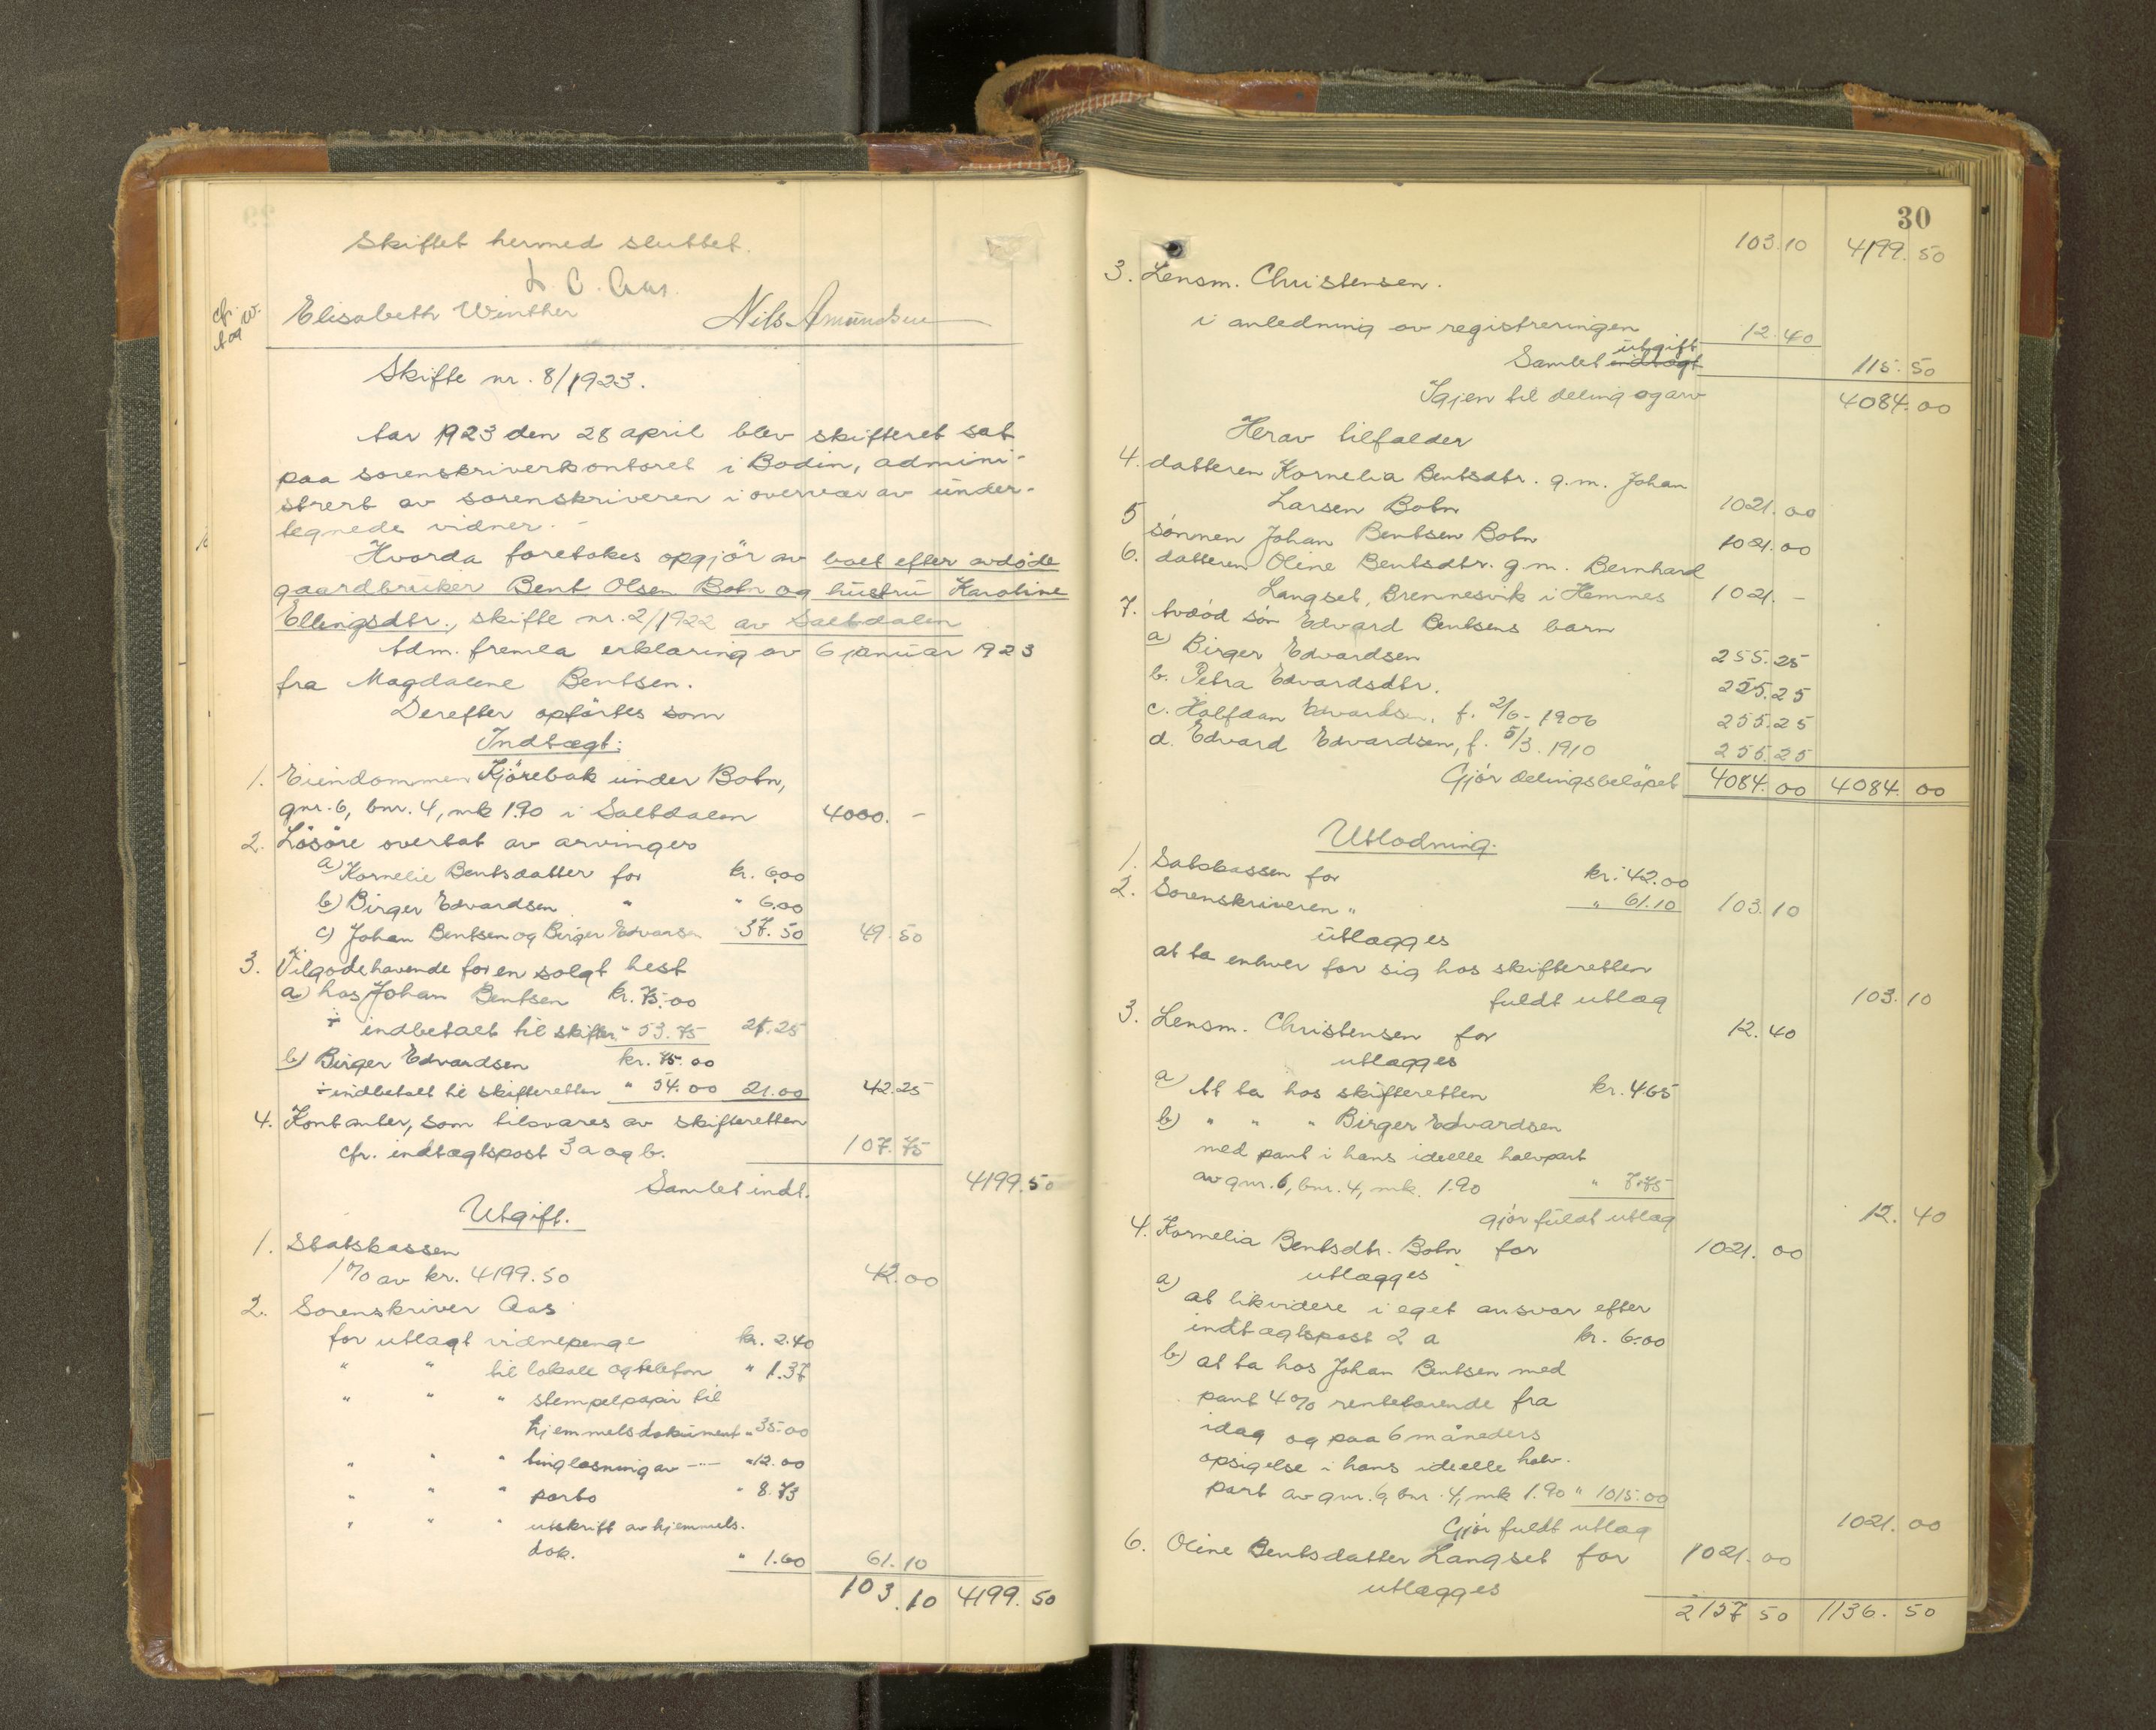 Skiftet hermed sluttet.
L. C. Aas.
Elisabeth Winther Nils Amundsen
cfr. W.
Skifte nr. 8/1923.
Aar 1923 den 28 april blev skifteret sat
paa sorenskriverkontoret i Bodin, admini-
strert av sorenskriveren i overvær av under-
tegnede vidner. -
Hvorda foretokes opgjör av boet efter avdöde
gaardbruker Bent Olsen Botn og hustru Karoline
Ellingsdtr., skifte nr. 2/1922 av Saltdalen
Adm. fremla erklæring av 6 januar 1923
fra Magdalene Bentsen.
Derefter opførtes som
Indtægt:
1. Eiendommen Kjörebak under Botn,
gnr. 6, bnr. 4, mk 1.90 i Saltdalen 4000. -
2. Lösöre overtat av arvinger
a) Kornelie Bentsdatter for kr. 6.00
b) Birger Edvardsen " " 6.00
c) Johan Bentsen og Birger Edvarsen 37.50 49.50
3. Tilgodehavende for en solgt hest
a) hos Johan Bentsen kr. 75.00
÷ indbetalt til skifter. " 53.75 21.25
b) Birger Edvardsen kr. 75.00
÷ indbetalt til skifteretten " 54.00 21.00 42.25
4. Kontanter, som tilsvares av skifteretten
cfr. indtægtspost 3 a og b. 107.75
Samlet indt. 4199.50
Utgift.
1. Statskassen
1% av kr. 4199.50 42.00
2. Sorenskriver Aas
for utlagt vidnepenge kr. 2.40
" " til lokale og telefon " 1.37
" " " stempelpapir til
hjemmelsdokument " 35.00
" " " tinglæsning av -"- " 12.00
" " " porto " 8.73
" " " utskrift av hjemmels.
dok. " 1.60 61.10
103.10 4199.50
30
103.10 4199.50
3. Lensm. Christensen.
i anledning av registreringen 12.40
utgift
Samlet indtægt 115.50
Igjen til deling og arv 4084.00
Herav tilfalder
4. datteren Kornelia Bentsdtr. g.m. Johan
Larsen Botn 1021.00
5 sönnen Johan Bentsen Botn 1021.00
6. datteren Oline Bentsdtr. g.m. Bernhard
Langset, Brennesvik i Hemnes 1021. -
7. avdöd sön Edvard Bentsens barn
a) Birger Edvardsen 255.25
b. Petra Edvardsdtr. 255.25
c. Halfdan Edvardsen, f. 2/6 - 1906 255.25
d. Edvard Edvardsen, f. 5/3. 1910 255.25
Gjör delingsbelöpet 4084.00 4084.00
Utlodning.
1. Satskassen for kr. 42.00
2. Sorenskriveren " " 61.10 103.10
utlægges
at ta enhver for sig hos skifteretten
fuldt utlæg 103.10
3. Lensm. Christensen for 12.40
utlægges
a) At ta hos skifteretten kr. 4.65
b) " " " Birger Edvardsen
med pant i hans ideelle halvpart
av gnr. 6, bnr. 4, mk. 1.90 " 7.75
gjör fuldt utlæg 12.40
4. Kornelia Bentsdtr. Botn for 1021.00
utlægges
a) at likvidere i eget ansvar efter
indtægtspost 2 a kr. 6.00
b) at ta hos Johan Bentsen med
pant 4% rentebærende fra
idag og paa 6 måneders
opsigelse i hans ideelle halv-
part av gnr. 6, bnr. 4, mk 1.90 " 1015.00
Gjör fuldt utlæg 1021.00
6. Oline Bentsdatter Langset for 1021.00
utlægges
2157 50 1136.50